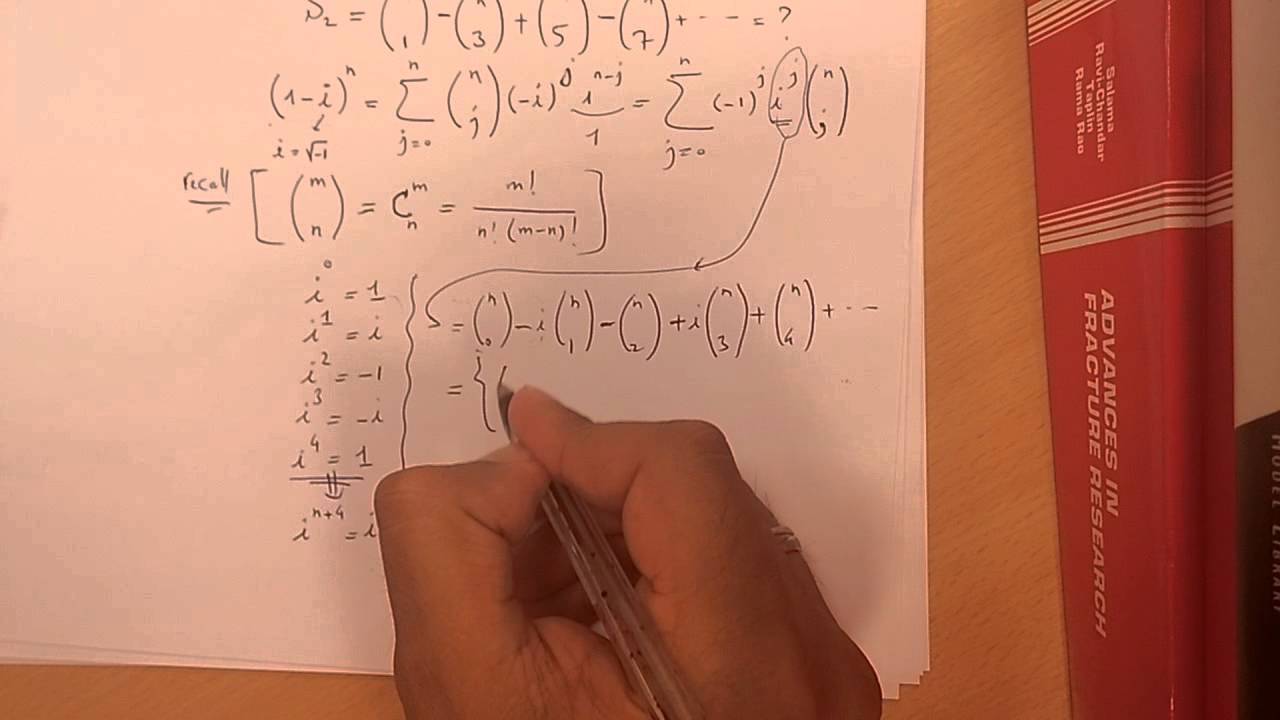 S₂ = (n 1) − (n 3) + (n 5) − (n 7) + ⋯ = ?
(1−i)ⁿ = Σ_{j=0}^{n} (n j) (−i)^j 1^{n−j} = Σ_{j=0}^{n} (−1)^j i^j (n j)
1
i = √−1
recall [ (m n) = C_n^m = m! / n! (m−n)! ]
i⁰ = 1
i¹ = i
i² = −1
i³ = −i
i⁴ = 1
⇓
i^{n+4} = i
= (n 0) − i (n 1) − (n 2) + i (n 3) + (n 4) + ⋯
= { (
Salama
Ravi-Chandar
Taplin
Rama Rao
ADVANCES IN
FRACTURE RESEARCH